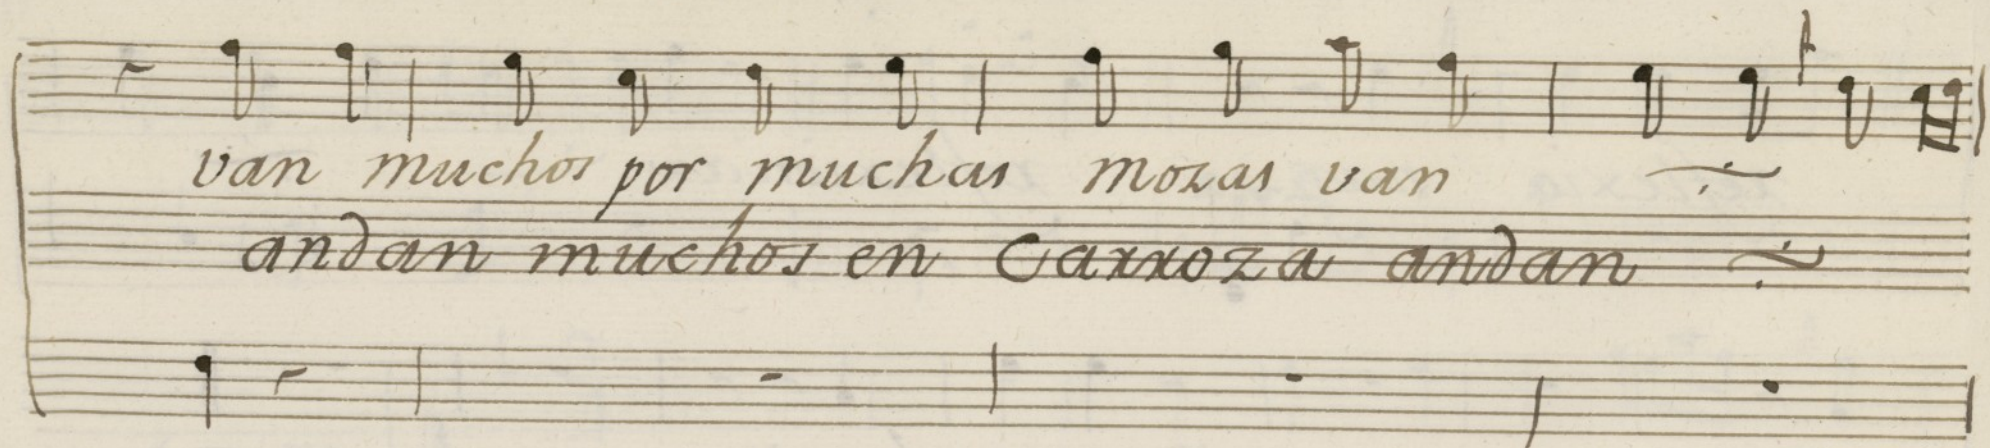 van muchos por muchas mozas van
andan muchos en Carroza andan